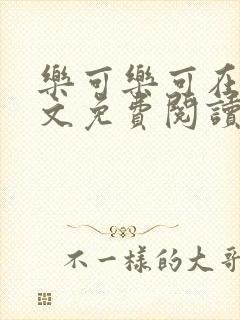 樂可樂可在
文免費閱讀
不一樣的大哥